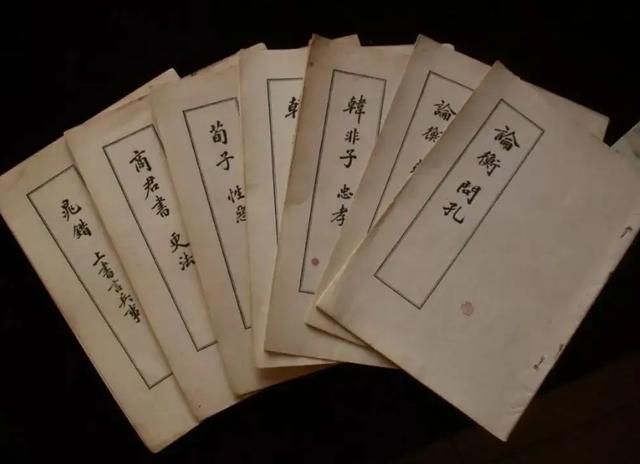 晁錯 上書言兵事
商君書 更法
荀子 性惡
韓非子 忠孝
論衡
論衡 問孔